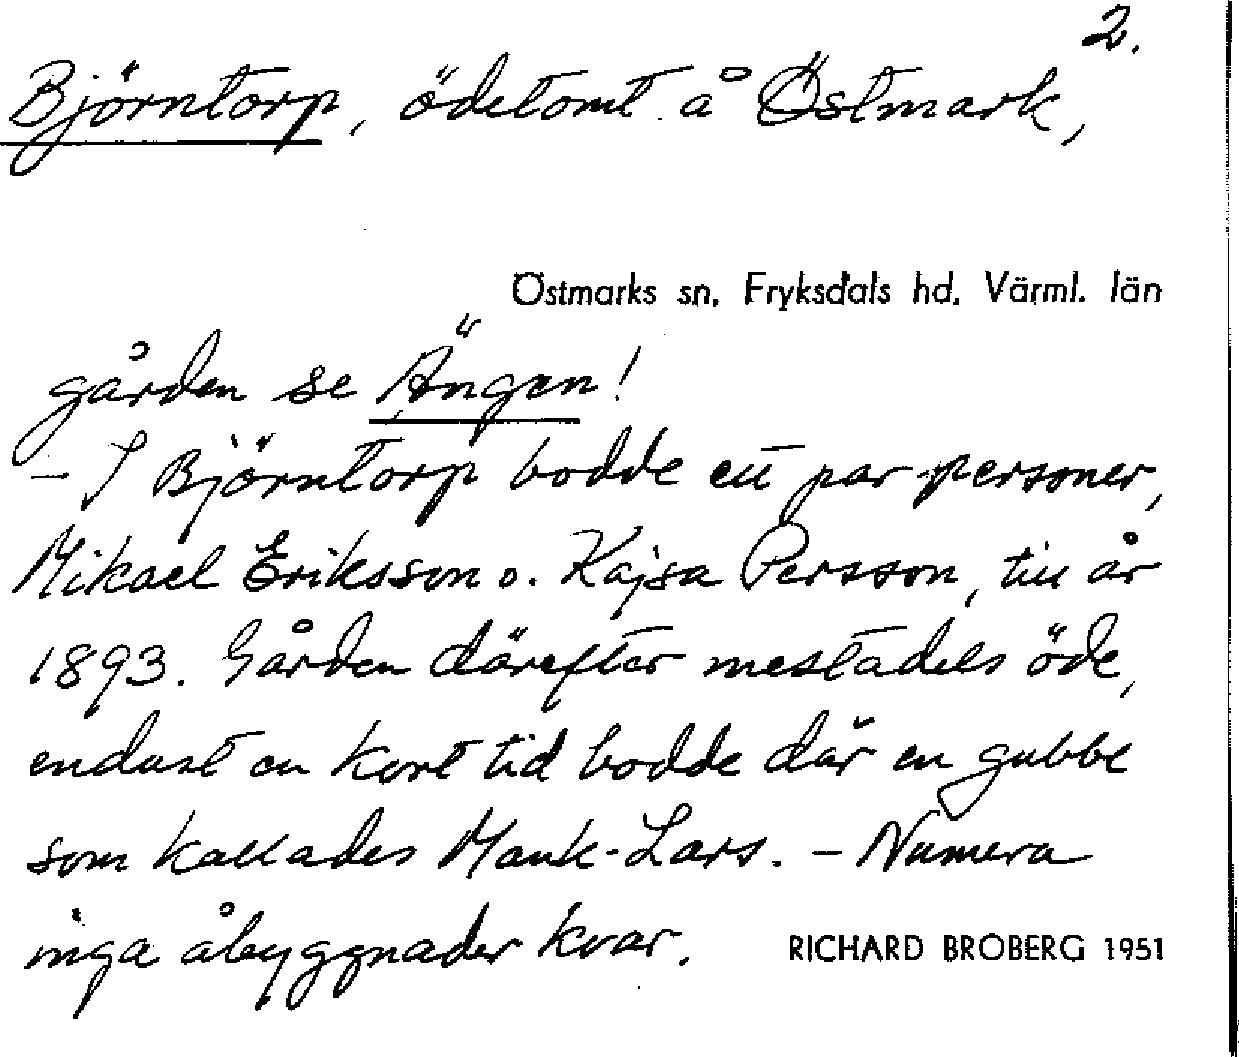 2.
Björntorp, ödetomt å Östmark,
Östmarks sn, Fryksdals hd. Värml. län
gården se Ängen!
- I Björntorp bodde ett par personer,
Mikael Eriksson o. Kajsa Persson, till år
1893. Gården därefter mestadels öde,
endast en kort tid bodde där en gubbe
som kallades Mank-Lars. - Numera
inga åbyggnader kvar.
RICHARD BROBERG 1951